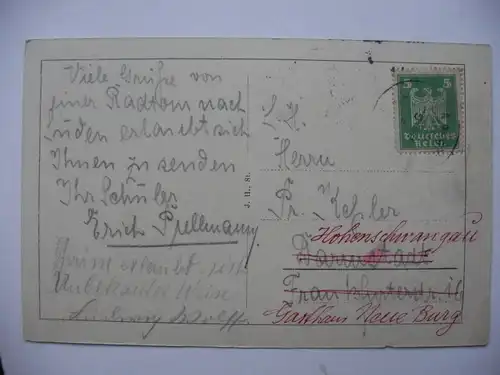 Viele Grüße von
einer Radtour nach
Süden erlaubt sich
Ihnen zu senden
Ihr Schüler
Erich Prellmann
erlaubt sich
Unbekannter Weise
Ludwig Wolff
J. H., St.
5 5
Deutsches
Reich
S. H.
Herrn
Pr. Kehler
Hohenschwangau
Darmstadt
Frankfurterstr. 16
Gasthaus Neue Burg